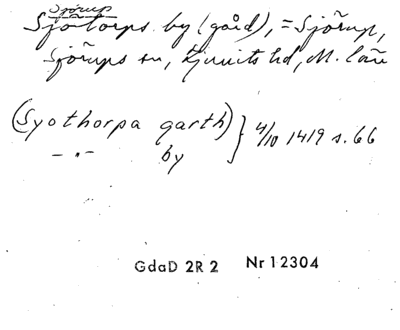 Sjörup
Sjötorps by (gård), = Sjörup,
Sjörups sn, Ljunits hd, M. län
(Syothorpa garth) } 4/10 1419 s. 66
— " — by
GdaD 2R 2 Nr 12304